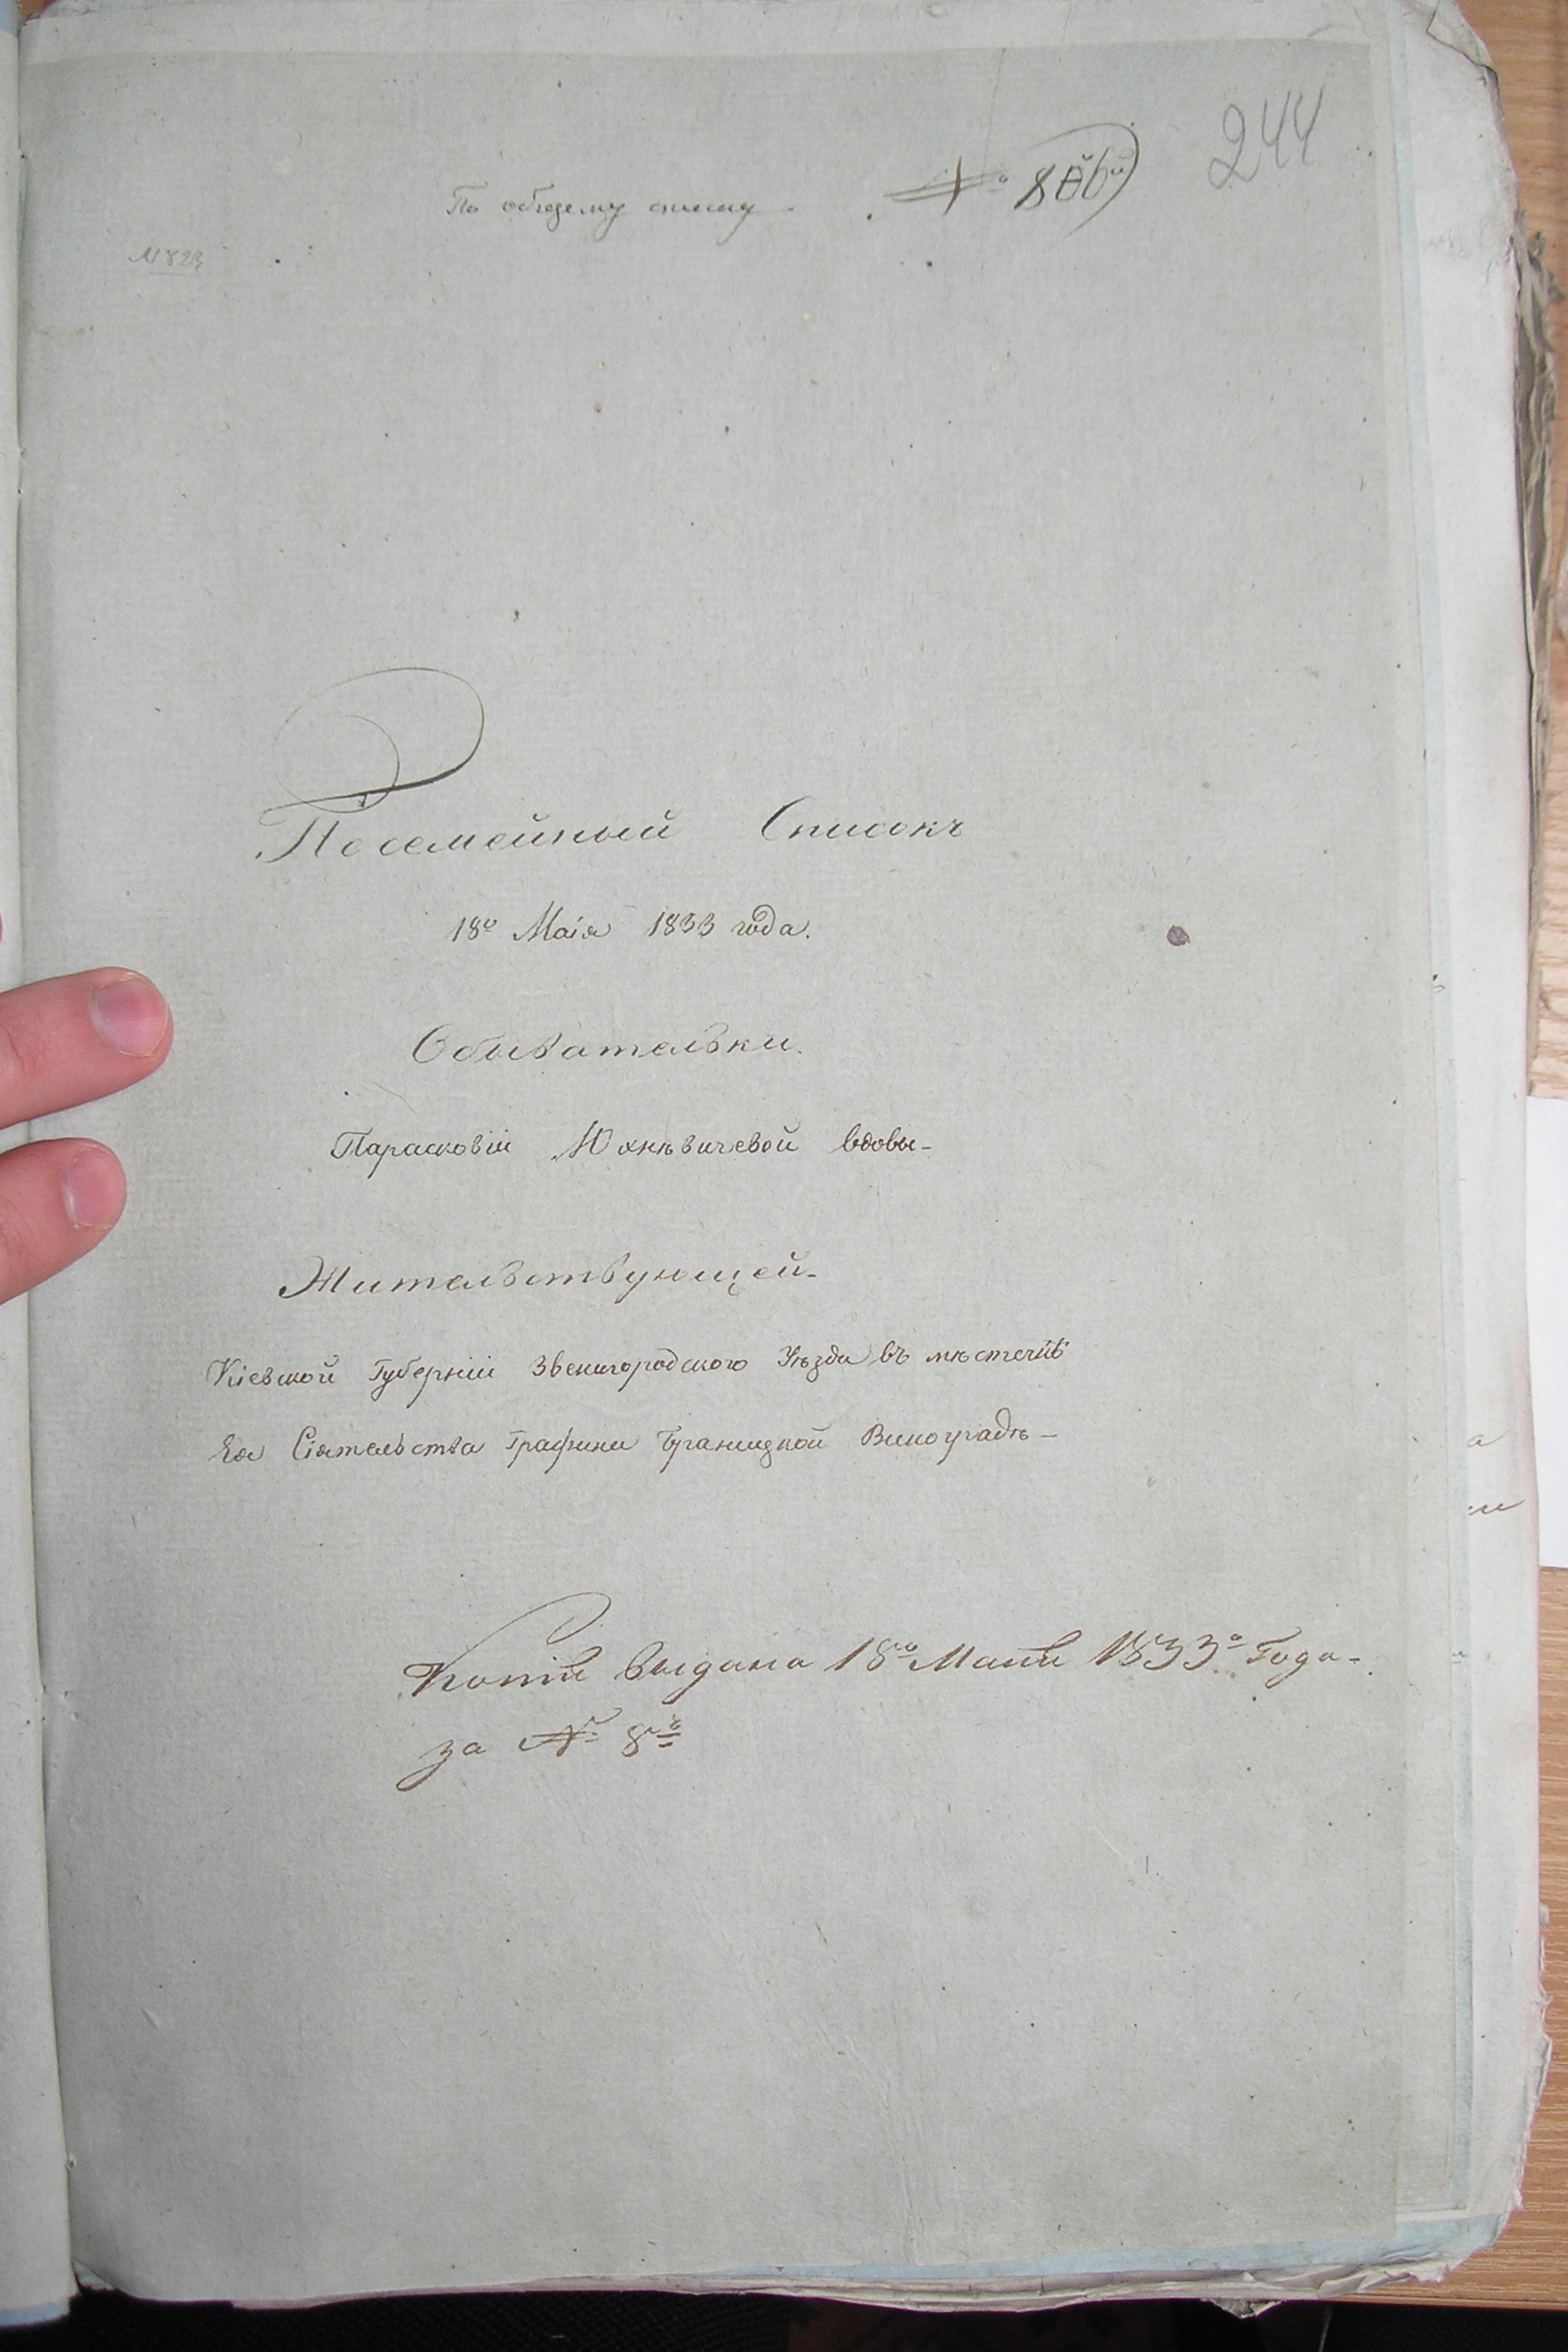 244
По общему списку № 806й
№ 823
Посемейный Списокъ
18º Маія 1833 года.
Обывательки.
Парасковіи Юхнѣвичевой вдовы
Жительствующей
Кіевской Губерніи Звенигородского Уѣзда въ мѣстечкѣ
Ея Сіятельства Графини Браницкой Виноградѣ
Копія выдана 18го Маія 1833º Года
за № 8мъ